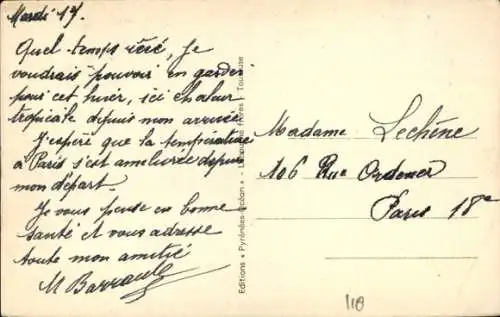 Mardi 17.
Quel temps rêvé, je
voudrais pouvoir en garder
pour cet hiver, ici chaleur
tropicale depuis mon arrivée
J'espère que la température
à Paris s'est améliorée depuis
mon départ.
Je vous pense en bonne
santé et vous adresse
toute mon amitié
M Barrault
Editions « Pyrénées-Océan » - frères - Toulouse
Madame Lechêne
106 Rue Ordener
Paris 18e
110